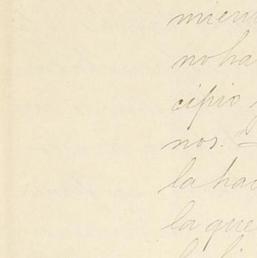 mien
no ha
cipio
nos.
la hac
la que